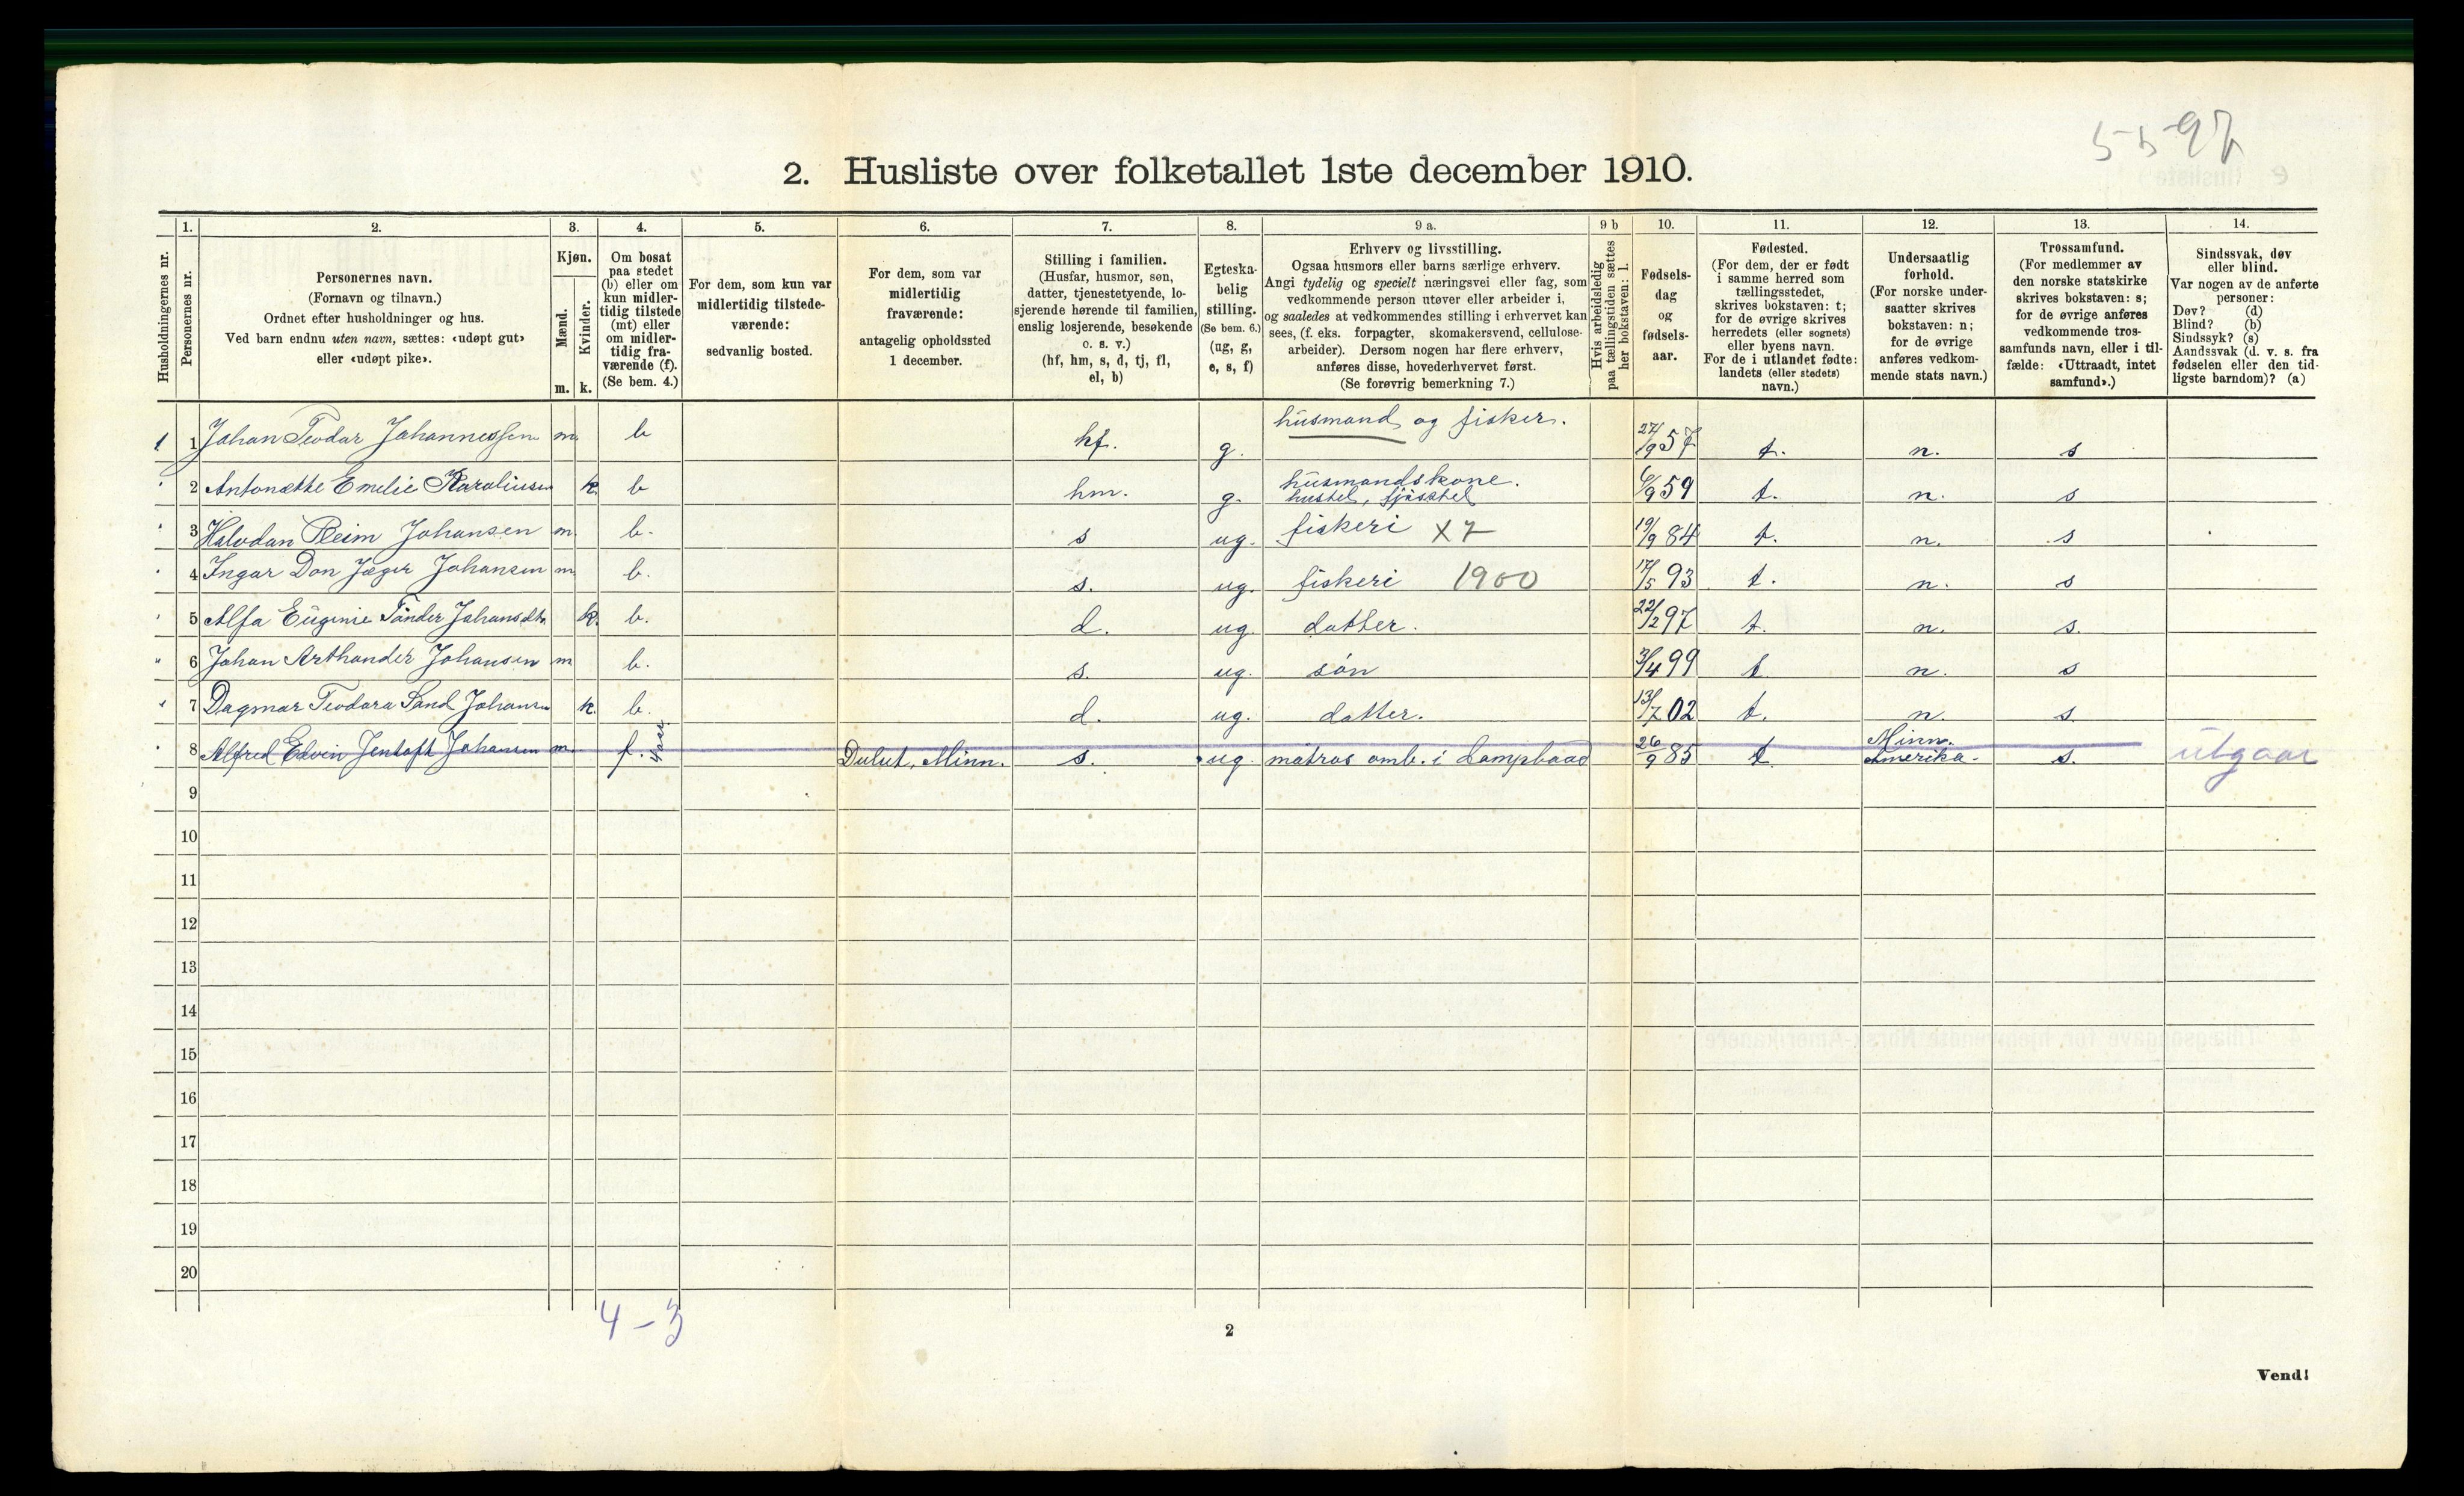 5-5-97
2. Husliste over folketallet 1ste december 1910.
Husholdningernes nr.
1. Personernes nr.
2. Personernes navn.
(Fornavn og tilnavn.)
Ordnet efter husholdninger og hus.
Ved barn endnu uten navn, sættes: «udøpt gut»
eller «udøpt pike».
3. Kjøn.
Mænd. m.
Kvinder. k.
4. Om bosat
paa stedet
(b) eller om
kun midler-
tidig tilstede
(mt) eller
om midler-
tidig fra-
værende (f).
(Se bem. 4.)
5. For dem, som kun var
midlertidig tilstede-
værende:
sedvanlig bosted.
6. For dem, som var
midlertidig
fraværende:
antagelig opholdssted
1 december.
7. Stilling i familien.
(Husfar, husmor, søn,
datter, tjenestetyende, lo-
sjerende hørende til familien,
enslig losjerende, besøkende
o. s. v.)
(hf, hm, s, d, tj, fl,
el, b)
8. Egteska-
belig
stilling.
(Se bem. 6.)
(ug, g,
e, s, f)
9 a. Erhverv og livsstilling.
Ogsaa husmors eller barns særlige erhverv.
Angi tydelig og specielt næringsvei eller fag, som
vedkommende person utøver eller arbeider i,
og saaledes at vedkommendes stilling i erhvervet kan
sees, (f. eks. forpagter, skomakersvend, cellulose-
arbeider). Dersom nogen har flere erhverv,
anføres disse, hovederhvervet først.
(Se forøvrig bemerkning 7.)
9 b Hvis arbeidsledig
paa tællingstiden sættes
her bokstaven: l.
10. Fødsels-
dag
og
fødsels-
aar.
11. Fødested.
(For dem, der er født
i samme herred som
tællingsstedet,
skrives bokstaven: t;
for de øvrige skrives
herredets (eller sognets)
eller byens navn.
For de i utlandet fødte:
landets (eller stedets)
navn.)
12. Undersaatlig
forhold.
(For norske under-
saatter skrives
bokstaven: n;
for de øvrige
anføres vedkom-
mende stats navn.)
13. Trossamfund.
(For medlemmer av
den norske statskirke
skrives bokstaven: s;
for de øvrige anføres
vedkommende tros-
samfunds navn, eller i til-
fælde: «Uttraadt, intet
samfund».)
14. Sindssvak, døv
eller blind.
Var nogen av de anførte
personer:
Døv? (d)
Blind? (b)
Sindssyk? (s)
Aandssvak (d. v. s. fra
fødselen eller den tid-
ligste barndom)? (a)
1 1 Johan Teodor Johannessen m. b hf. g. husmand og fisker. 27/9 57 t. n. s
2 Antonette Emelie Karoliusen k. b hm. g. husmandskone.
hustel, fjøsstel 6/9 59 t. n. s
3 Halvdan Reim Johansen m. b. s ug. fiskeri X7 19/9 84 t. n. s
4 Ingar Don Jæger Johansen m. b. s. ug. fiskeri 1900 17/5 93 t. n. s
5 Alfa Eugenie Tønder Johansdtr. k. b. d. ug. datter. 22/2 97 t. n. s.
6 Johan Arthander Johansen m b. s. ug. søn 3/4 99 t n. s
7 Dagmar Teodora Sand Johansen k. b. d. ug. datter. 13/7 02 t. n. s
8 Alfred Edvin Jentoft Johansen m. f. Dulut, Minn. s. ug. matros omb. i Dampbaad 26/9 85 t Minn. Amerika. s. utgaar
9
10
11
12
13
14
15
16
17
18
19
20
4-3
2
Vend!